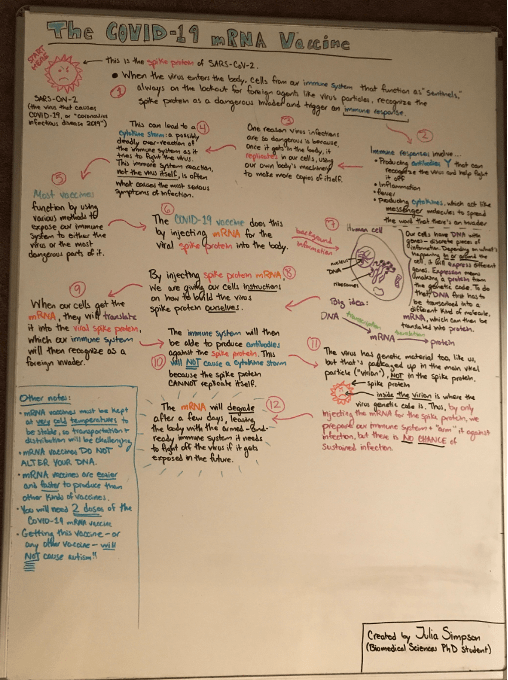 The COVID-19 mRNA Vaccine
START HERE
This is the spike protein of SARS-CoV-2.
SARS-CoV-2
(the virus that causes
COVID-19, or "coronavirus
infectious disease 2019")
• When the virus enters the body, cells from our immune system that function as "sentinels,"
always on the lookout for foreign agents like virus particles, recognize the
spike protein as a dangerous invader and trigger an immune response.
1
2
Immune responses involve...
• Producing antibodies Y that can
recognize the virus and help fight
it off
• Inflammation
• Fever
• Producing cytokines, which act like
messenger molecules to spread
the word that there's an invader
3
One reason virus infections
are so dangerous is because
once it gets in the body, it
replicates in our cells, using
our own body's machinery
to make more copies of itself.
4
This can lead to a
cytokine storm: a possibly
deadly over-reaction of
the immune system as it
tries to fight the virus.
This immune system reaction,
not the virus itself, is often
what causes the most serious
symptoms of infection.
5
Most vaccines
function by using
various methods to
expose our immune
system to either the
virus or the most
dangerous parts of it.
6
The COVID-19 vaccine does this
by injecting mRNA for the
viral spike protein into the body.
background information
7
Human cell
nucleus
DNA
ribosomes
Our cells have DNA with
genes - discrete pieces of
information. Depending on what's
happening in or around the
cell, it will express different
genes. Expression means
making a protein from
the genetic code. To do
that, DNA first has to
be transcribed into a
different kind of molecule,
mRNA, which can then be
translated into protein.
Big idea:
DNA
transcription
mRNA
translation
protein
8
By injecting spike protein mRNA,
we are giving our cells instructions
on how to build the virus
spike protein ourselves.
9
When our cells get the
mRNA, they will translate
it into the viral spike protein,
which our immune system
will then recognize as a
foreign invader!
10
The immune system will then
be able to produce antibodies
against the spike protein. This
will NOT cause a cytokine storm
because the spike protein
CANNOT replicate itself.
11
The virus has genetic material too, like us,
but that's packaged up in the main viral
particle ("virion"), NOT in the spike protein.
spike protein
inside the virion is where the
virus genetic code is. Thus, by only
injecting the mRNA for the spike protein, we
prepare our immune system + "arm" it against
infection, but there is NO CHANCE of
sustained infection.
12
The mRNA will degrade
after a few days, leaving
the body with the armed-and-
ready immune system it needs
to fight off the virus if it gets
exposed in the future.
Other notes:
• mRNA vaccines must be kept
at very cold temperatures to
be stable, so transportation +
distribution will be challenging.
• mRNA vaccines DO NOT
ALTER YOUR DNA.
• mRNA vaccines are easier
and faster to produce than
other kinds of vaccines.
• You will need 2 doses of the
COVID-19 mRNA vaccine
• Getting this vaccine - or
any other vaccine - will
NOT cause autism!!
Created by Julia Simpson
(Biomedical Sciences PhD Student)